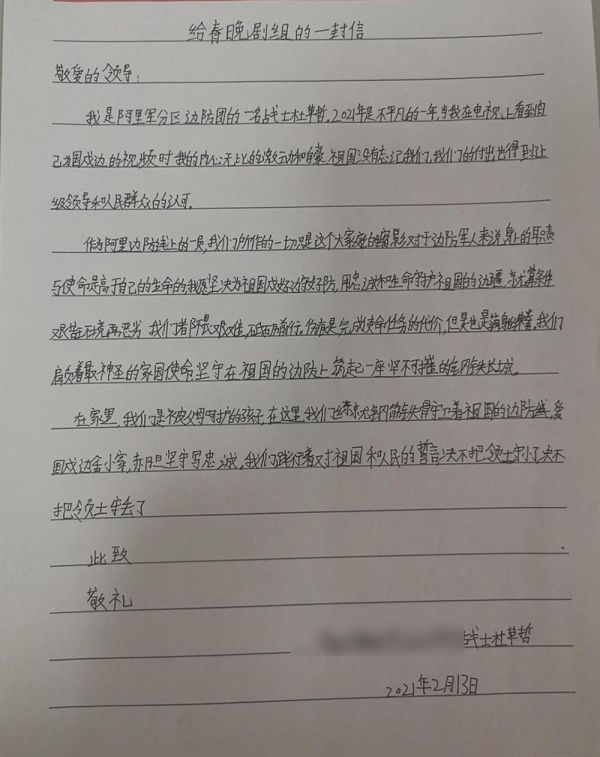 给春晚剧组的一封信
敬爱的领导:
我是阿里军分区边防团的一名战士杜草哲。2021年是不平凡的一年,当我在电视上看到自
己为国戍边的视频时我的内心无比的激动和自豪,祖国没有忘记我们,我们的付出也得到了上
级领导和人民群众的认可。
作为阿里边防线上的一员,我们所作的一切只是这个大家庭的缩影对于边防军人来说身上的职责
与使命是高于自己的生命的我愿坚决为祖国戍好边守好防,用忠诚和生命守护祖国的边疆,条件
艰苦环境再恶劣 我们都 前行,伤痕是完成使命任务的代价,但是也是荣誉。我们
肩负着最神圣的家国使命,坚守在祖国的边防上筑起一座坚不可摧的钢铁长城。
在家里,我们是被父母呵护的孩子,在这里,我们 钢筋铁骨守卫着祖国的边防线,爱
国戍边舍小家,赤胆坚守写忠诚。我们践行着对祖国和人民的誓言决不把领土守小了,决不
把领土守丢了
此致
敬礼
战士杜草哲
2021年2月13日